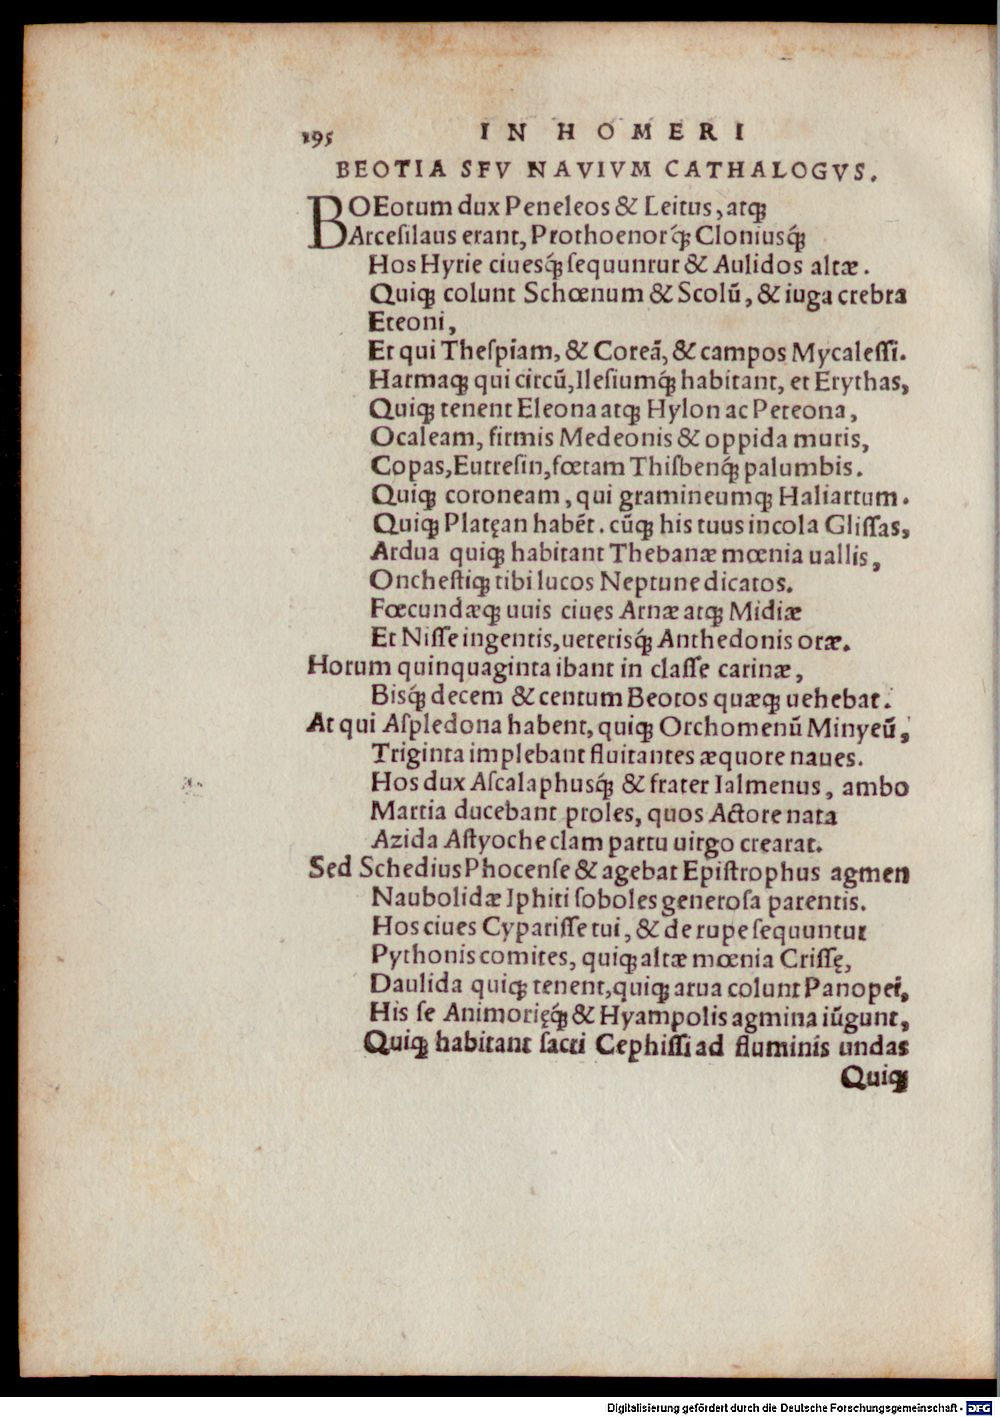 195 IN HOMERI
BEOTIA SEV NAVIVM CATHALOGVS.
BOEotum dux Peneleos & Leitus, atqꝫ
Arcesilaus erant, Prothoenorq́ꝫ Cloniusq́ꝫ
Hos Hyrie ciuesq́ꝫ sequuntur & Aulidos altæ.
Quiqꝫ colunt Schœnum & Scolū, & iuga crebra
Eteoni,
Et qui Thespiam, & Coreā, & campos Mycalessi.
Harmaqꝫ qui circū, Ilesiumq́ꝫ habitant, et Erythas,
Quiqꝫ tenent Eleona atqꝫ Hylon ac Peteona,
Ocaleam, firmis Medeonis & oppida muris,
Copas, Eutresin, fœtam Thisbenq́ꝫ palumbis.
Quiqꝫ coroneam, qui gramineumqꝫ Haliartum.
Quiqꝫ Platęan habēt. cūqꝫ his tuus incola Glissas,
Ardua quiqꝫ habitant Thebanæ mœnia uallis,
Onchestiqꝫ tibi lucos Neptune dicatos.
Fœcundæqꝫ uuis ciues Arnæ atqꝫ Midiæ
Et Nisse ingentis, ueterisq́ꝫ Anthedonis oræ.
Horum quinquaginta ibant in classe carinæ,
Bisq́ꝫ decem & centum Beotos quæqꝫ uehebat.
At qui Aspledona habent, quiqꝫ Orchomenū Minyeū,
Triginta implebant fluitantes æquore naues.
Hos dux Ascalaphusq́ꝫ & frater Ialmenus, ambo
Martia ducebant proles, quos Actore nata
Azida Astyoche clam partu uirgo crearat.
Sed Schedius Phocense & agebat Epistrophus agmen
Naubolidæ Iphiti soboles generosa parentis.
Hos ciues Cyparisse tui, & de rupe sequuntur
Pythonis comites, quiqꝫ altæ mœnia Crissę,
Daulida quiqꝫ tenent, quiqꝫ arua colunt Panopei,
His se Animorięq́ꝫ & Hyampolis agmina iūgunt,
Quiqꝫ habitant sacri Cephissi ad fluminis undas
Quiqꝫ
Digitalisierung gefördert durch die Deutsche Forschungsgemeinschaft - DFG